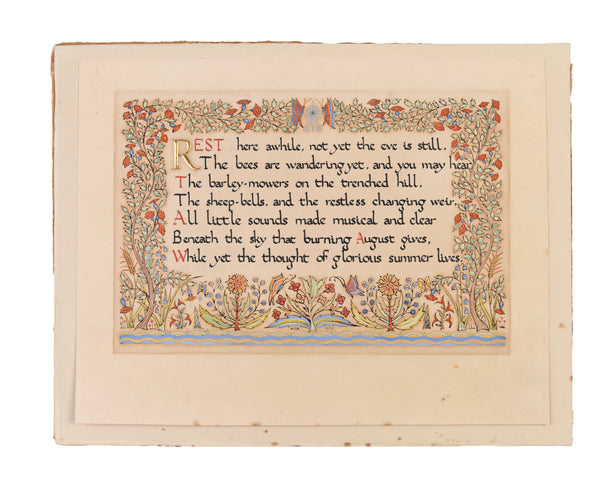 REST here awhile, not yet the eve is still,
The bees are wandering yet, and you may hear
The barley-mowers on the trenched hill,
The sheep-bells, and the restless changing weir,
All little sounds made musical and clear
Beneath the sky that burning August gives,
While yet the thought of glorious summer lives.